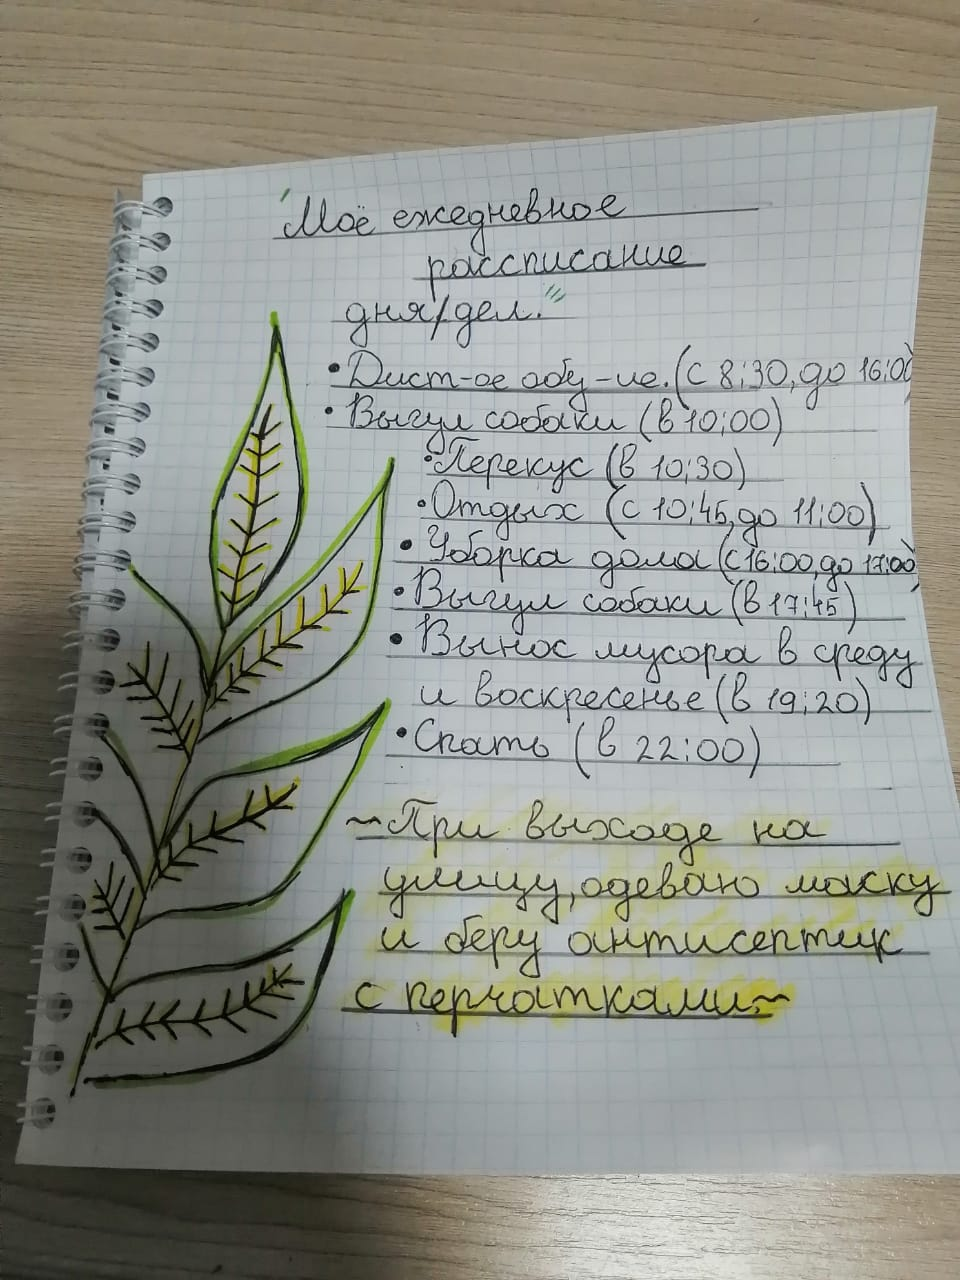 "Моё ежедневное
рассписание
дня/дел."
• Дист-ое обу-ие. (с 8:30, до 16:00)
• Выгул собаки (в 10:00)
• Перекус (в 10:30)
• Отдых (с 10:45, до 11:00)
• Уборка дома (с 16:00, до 17:00)
• Выгул собаки (в 17:45)
• Вынос мусора в среду
и воскресенье (в 19:20)
• Спать (в 22:00)
~При выходе на
улицу, одеваю маску
и беру антисептик
с перчатками.~